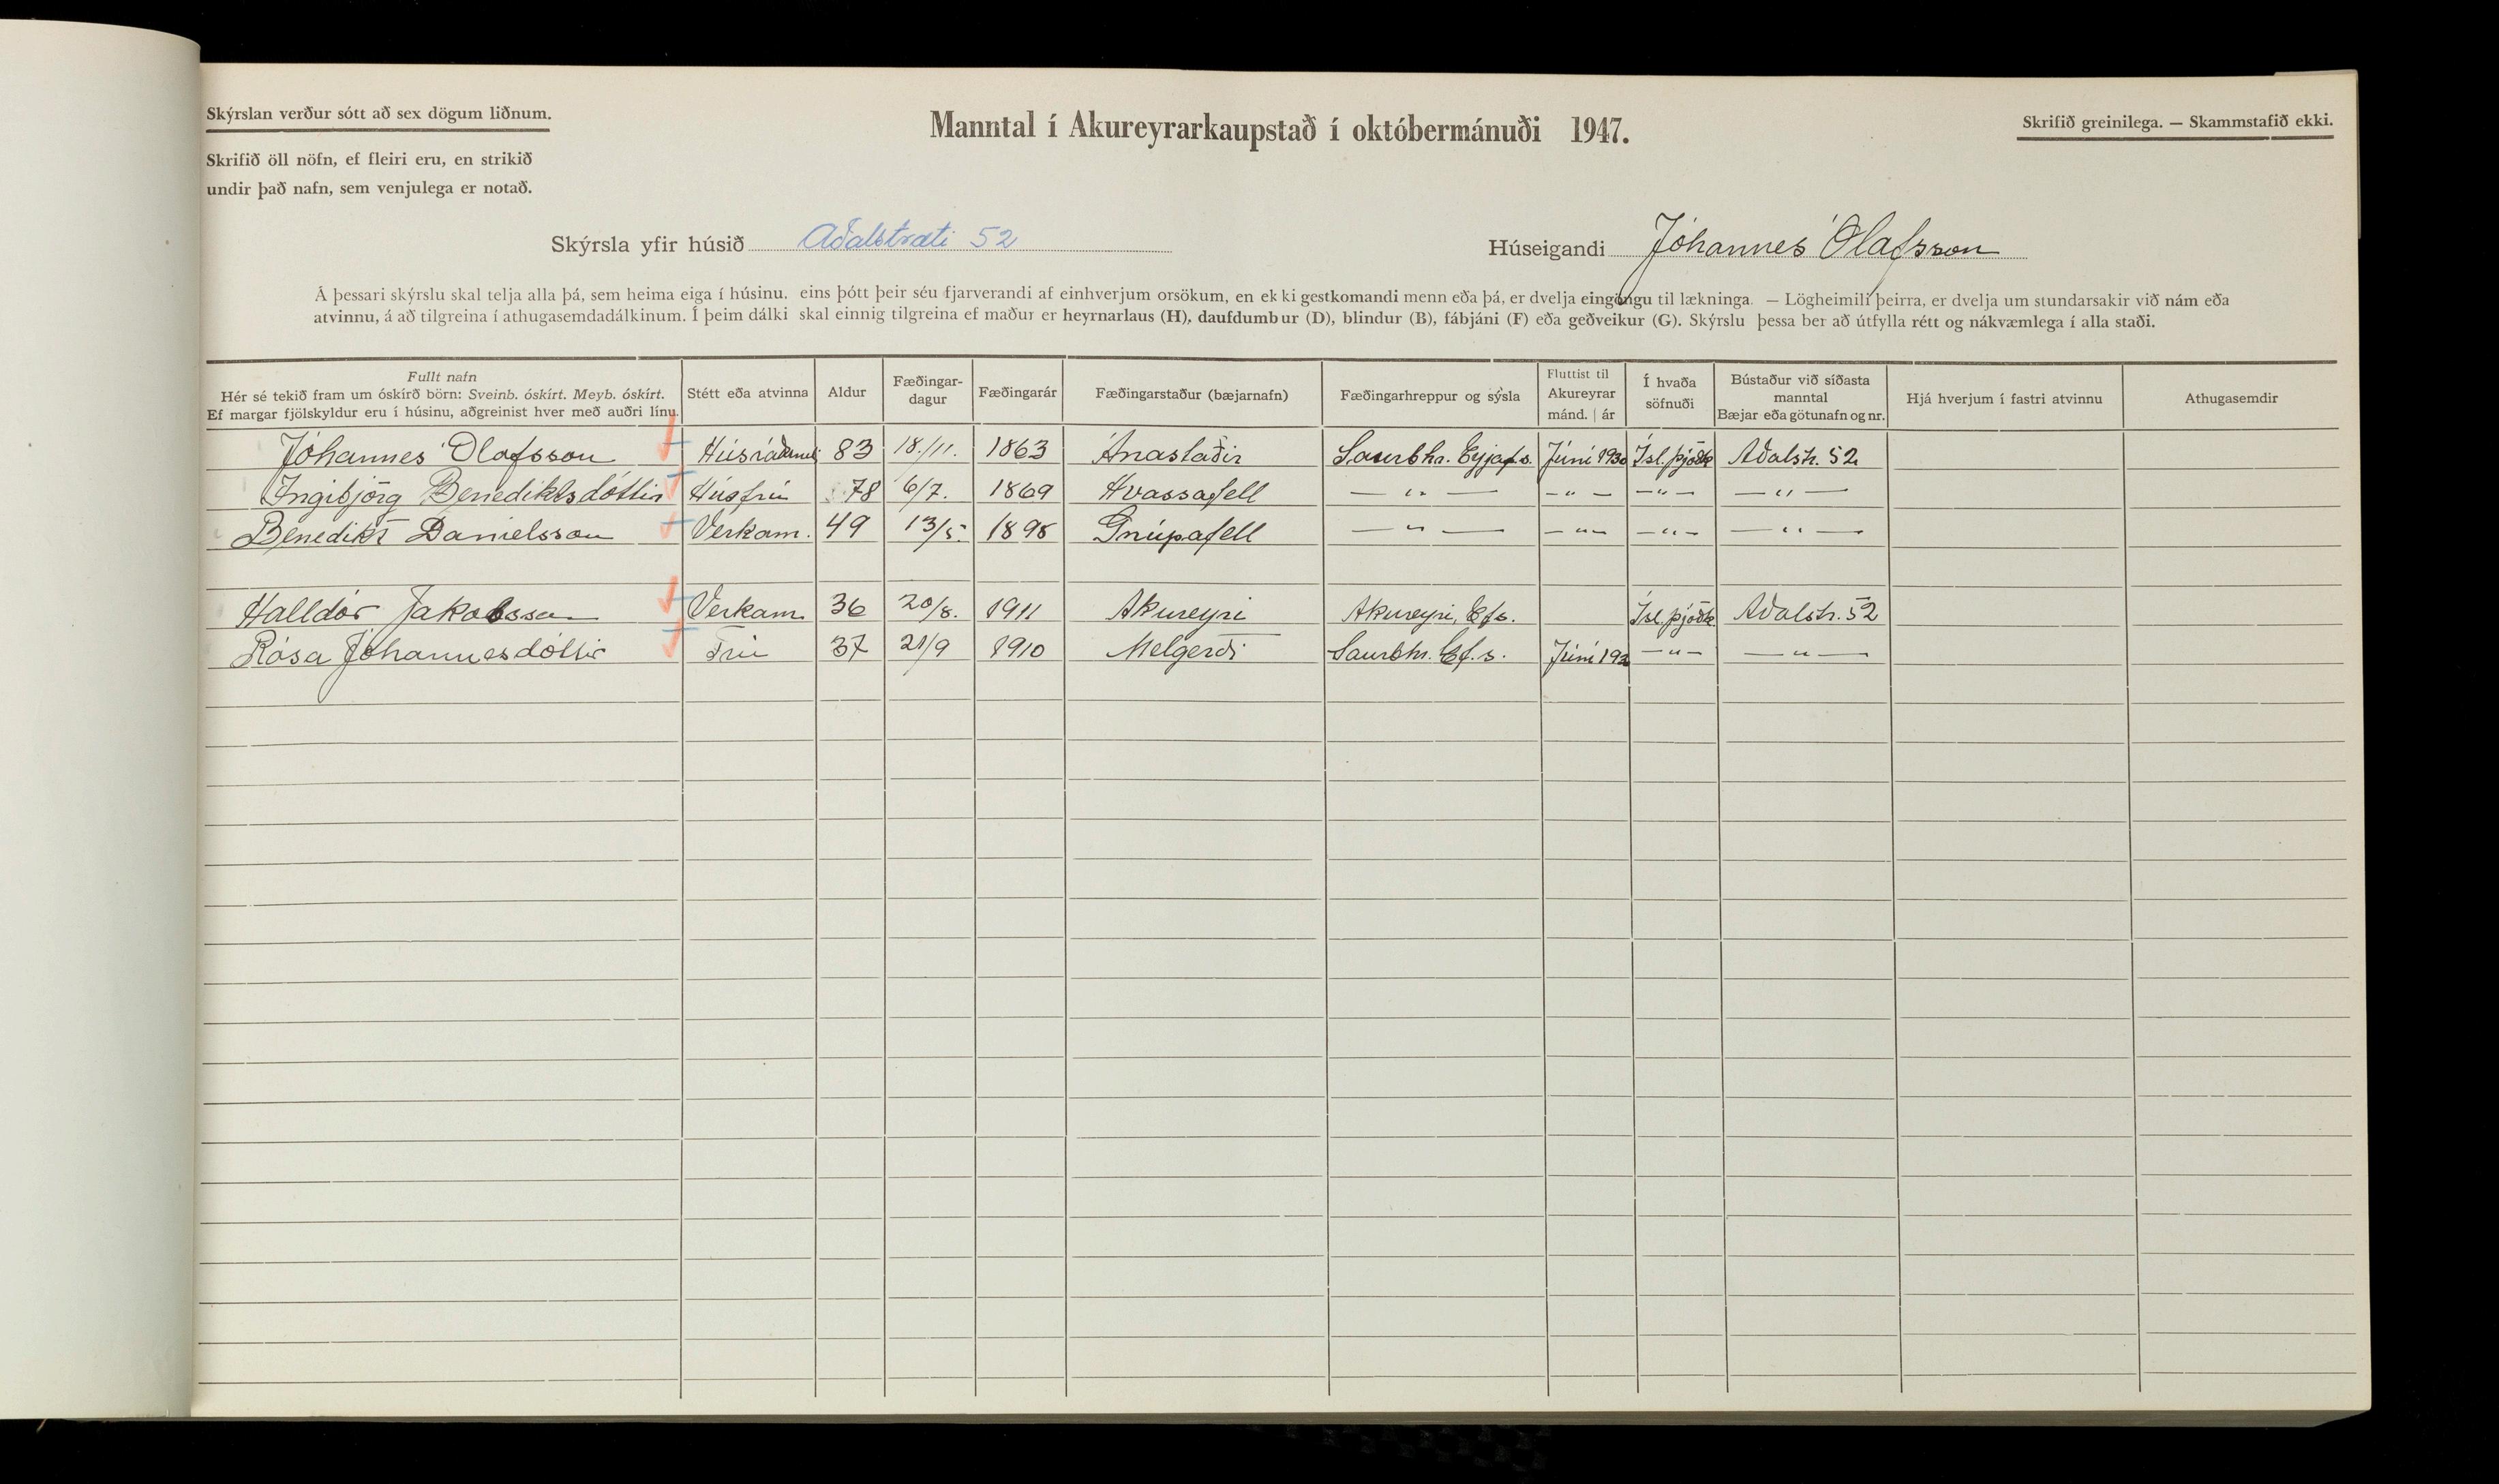 Skýrslan verður sótt að sex dögum liðnum.
Skrifið öll nöfn, ef fleiri eru, en strikið
undir það nafn, sem venjulega er notað.
Manntal í Akureyrarkaupstað í októbermánuði 1947.
Skrifið greinilega. — Skammstafið ekki.
Skýrsla yfir húsið Aðalstræti 52
Húseigandi Jóhannes Ólafsson
Á þessari skýrslu skal telja alla þá, sem heima eiga í húsinu, eins þótt þeir séu fjarverandi af einhverjum orsökum, en ekki gestkomandi menn eða þá, er dvelja eingöngu til lækninga. — Lögheimili þeirra, er dvelja um stundarsakir við nám eða
atvinnu, á að tilgreina í athugasemdadálkinum. Í þeim dálki skal einnig tilgreina ef maður er heyrnarlaus (H), daufdumbur (D), blindur (B), fábjáni (F) eða geðveikur (G). Skýrslu þessa ber að útfylla rétt og nákvæmlega í alla staði.
Fullt nafn
Hér sé tekið fram um óskírð börn: Sveinb. óskírt. Meyb. óskírt.
Ef margar fjölskyldur eru í húsinu, aðgreinist hver með auðri línu.
Stétt eða atvinna
Aldur
Fæðingar-
dagur
Fæðingarár
Fæðingarstaður (bæjarnafn)
Fæðingarhreppur og sýsla
Fluttist til
Akureyrar
mánd. | ár
Í hvaða
söfnuði
Bústaður við síðasta
manntal
Bæjar eða götunafn og nr.
Hjá hverjum í fastri atvinnu
Athugasemdir
Jóhannes Ólafsson 83 18./11. 1863 Ánastaðir Saurbhr. Eyjafs. Júní 1930 Ísl. þjóðk Aðalstr. 52
Ingibjörg Benediktsdóttir Húsfrú 78 6/7. 1869 Hvassafell — " — — " — — " — — " —
Benedikt Danielsson Verkam. 49 13/5. 1898 Gnúpafell — " — — " — — " — — " —
Halldór Jakobsson Verkam. 36 20/8. 1911 Akureyri Akureyri, Efs. Ísl. þjóðk. Aðalstr. 52
Rósa Jóhannesdóttir Frú 37 21/9 1910 Melgerði Saurbhr. Ef.s. Júní — " — — " —